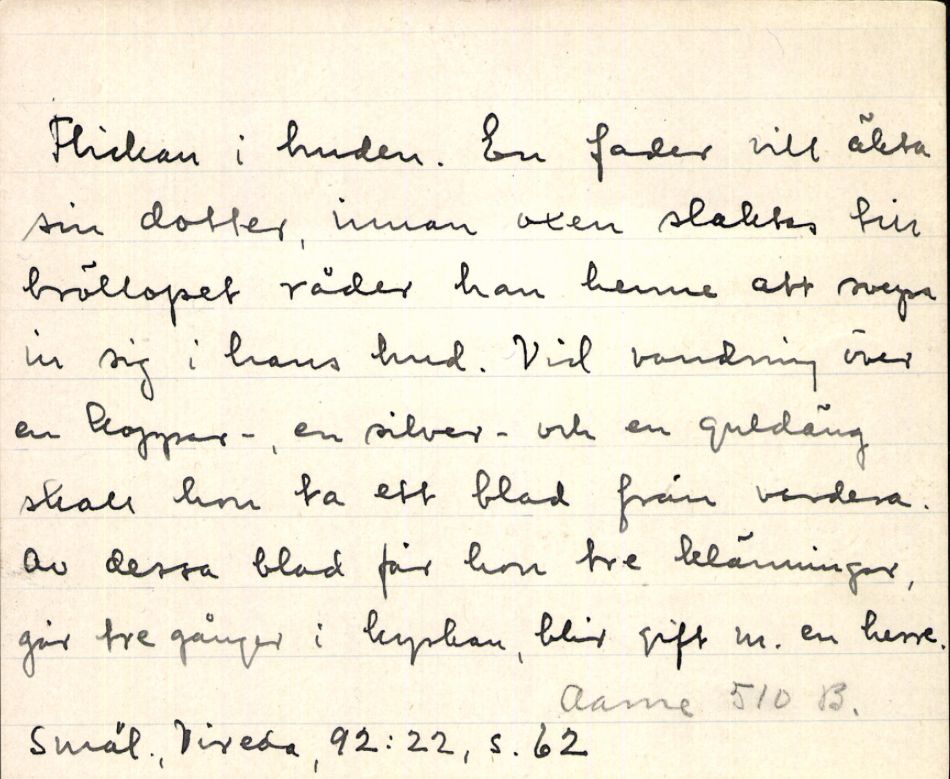 Flickan i huden. En fader vill äkta
sin dotter, innan oxen slaktas till
bröllopet råder han henne att svepa
in sig i hans hud. Vid vandring över
en koppar-, en silver- och en guldäng
skall hon ta ett blad från vardera.
Av dessa blad får hon tre klänningar,
går tre gånger i kyrkan, blir gift m. en herre.
Aarne 510 B.
Smål., Vireda, 92:22, s. 62